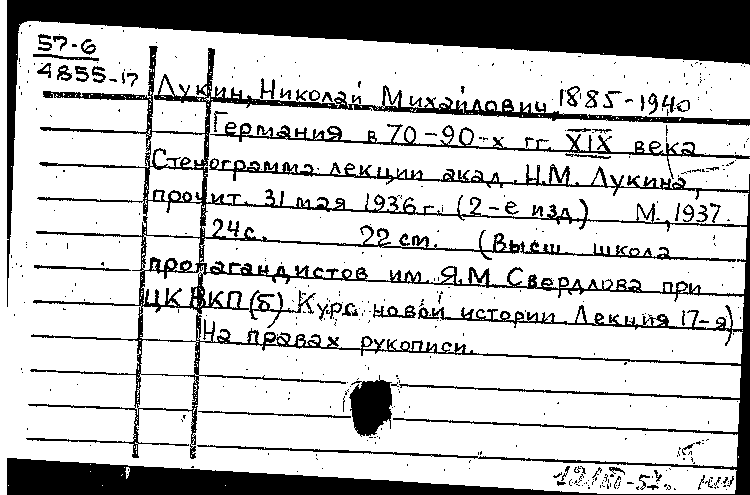 57-6
4855-17
Лукин, Николай Михайлович, 1885-1940
Германия в 70-90-х гг. XIX века
Стенограмма лекции акад. Н.М. Лукина,
прочит. 31 мая 1936 г. (2-е изд.) М., 1937.
24 с. 22 cm. (Высш. школа
пропагандистов им. Я.М. Свердлова при
ЦК ВКП(б). Курс новой истории. Лекция 17-я)
На правах рукописи.